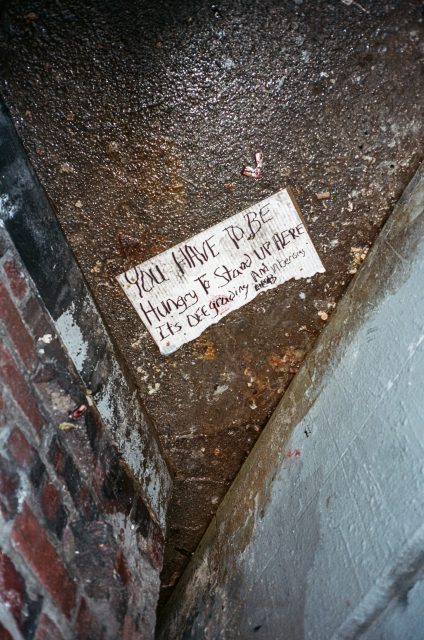 YOU HAVE TO BE
HUNGRY TO STAND UP HERE
ITS DEEGRADING AND